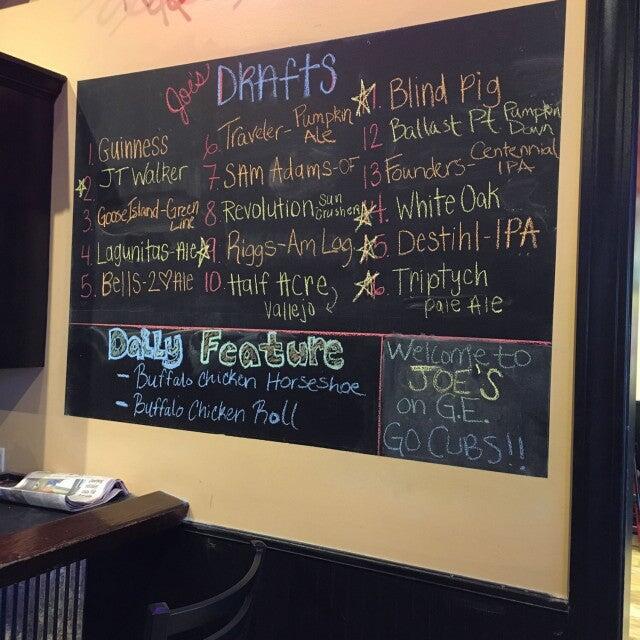 Joe's DRAfts
1. Guinness
2 JT Walker
3. Goose Island-Green
Line
4. Lagunitas-Ale
5. Bells-2♡Ale
6. Traveler- Pumpkin
Ale
7. SAM Adams-OF
8. Revolution Sun
Crusher
9. Riggs-Am Lag
10. Half Acre
Vallejo
11. Blind Pig
12 Ballast Pt. Pumpkin
Down
13 Founders- Centennial
IPA
14. White Oak
15. Destihl-IPA
16. Triptych
Pale Ale
Daily Feature
- Buffalo Chicken Horseshoe
- Buffalo Chicken Roll
Welcome to
JOE'S
on G.E.
GO CUBS!!